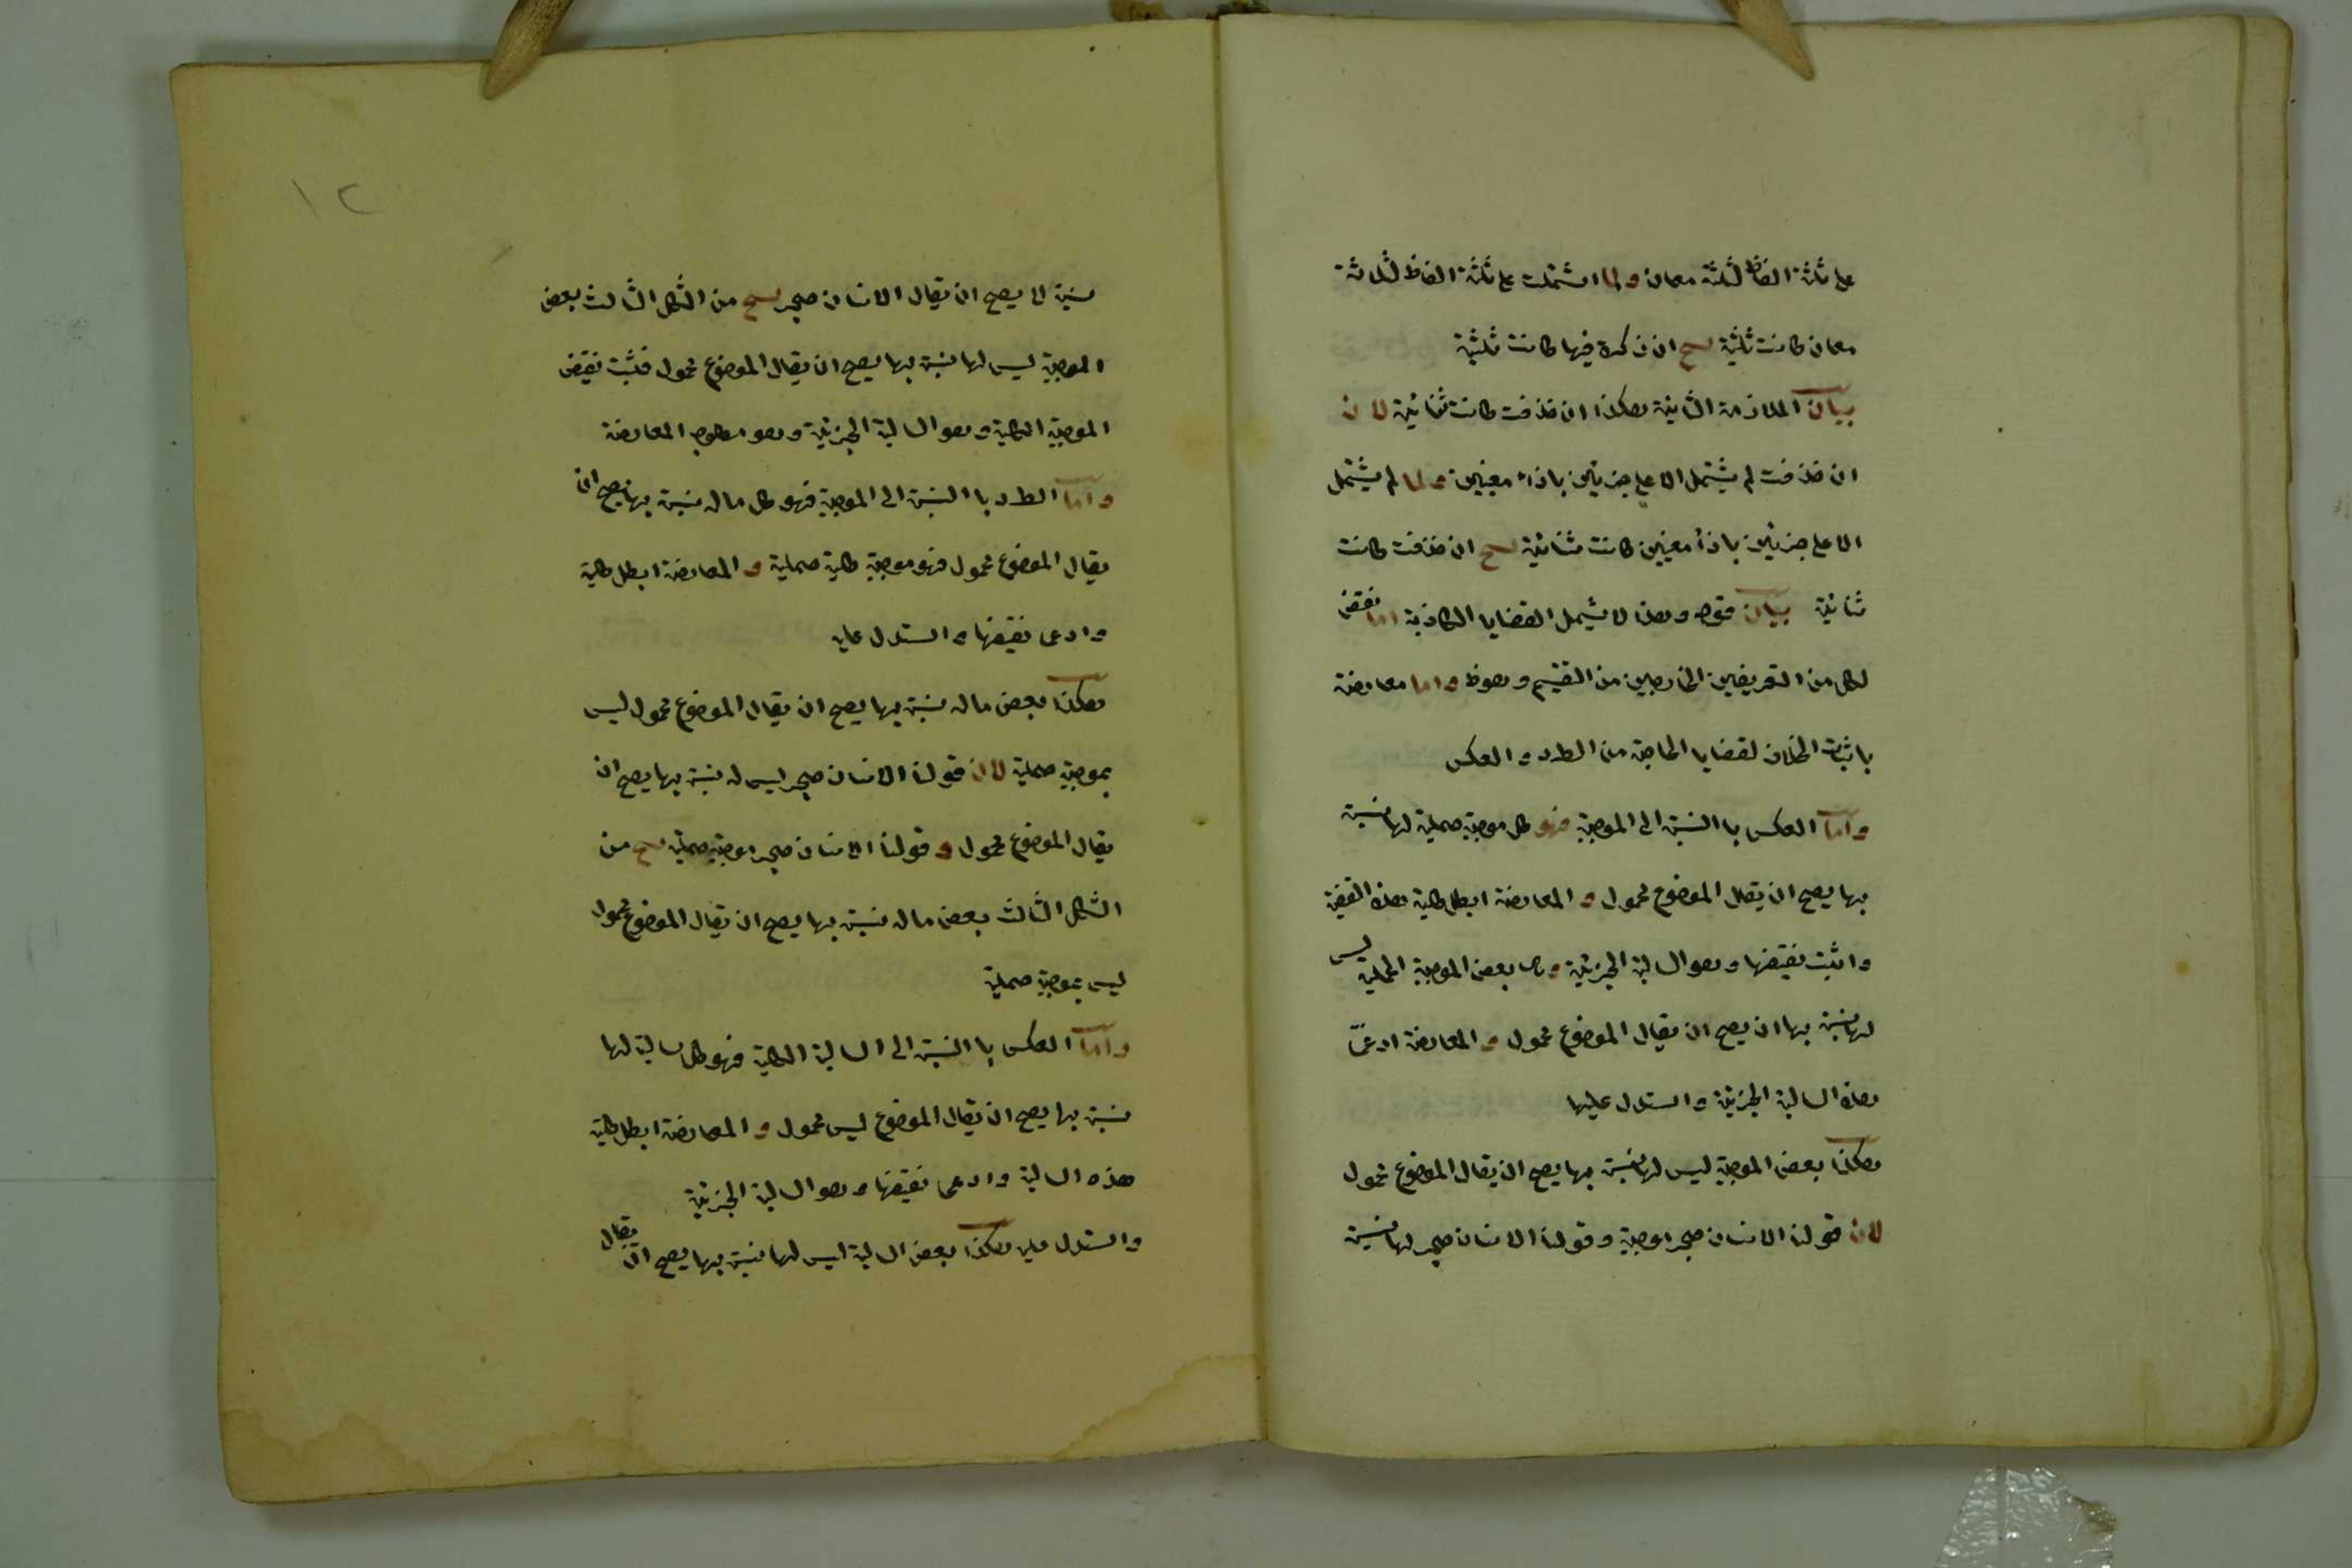 على ثلثة الفاظ لثلثة معان ولما اشتملت على ثلثة الفاظ لثلاثة
معان كانت ثلثية ينتج ان ذكرة فيها كانت ثلثية
بيان الملازمة الثانية هكذا ان حذفت كانت ثنائية لان
ان حذفت لم يشتمل الا على جزئين باذاء معنيين ولما لم يشتمل
الا على جزئين باذاء معنيين كانت ثنائية ينتج ان حذفت كانت
ثنائية بيان قوله وهذا لا يشمل القضايا الكاذبة اما نقض
لكل من التعريفين الخارجين من التقسيم وهوظ واما معارضة
باثبات الخلاف لقضايا الحاجة من الطرد والعكس
واما العكس با النسبة الى الموجبة فهو كل موجبة حملية لها نسبة
بها يصح ان يقال الموضوع محمول و المعارضة ابطل كلية هذه القضية
واثبت نقيضها وهو السالبة الجزئية وهى بعض الموجبة الحملية ليس
لها نسبة بها ان يصح ان يقال الموضوع محمول و المعارضة ادعى
هذه السالبة الجزئية واستدل عليها
هكذا بعض الموجبة ليس لها نسبة بها يصح ان يقال الموضوع محمول
لان قولنا الانسان حجر موجبة وقولنا الانسان حجر لها نسبة
١٢
نسبة لا يصح ان يقال الانسان حجر ينتج من الشكل الثالث بعض
الموجبة ليس لها نسبة بها يصح ان يقال الموضوع محمول فثبت نقيض
الموجبة الكلية وهو السالبة الجزئية وهو مطلوب المعارضة
واما الطرد با النسبة الى الموجبة فهو كل ماله نسبة بها يصح ان
يقال الموضوع محمول فهو موجبة كلية حملية و المعارضة ابطل كلية
وادعى نقيضها واستدل عليه
هكذا بعض ماله نسبة بها يصح ان يقال الموضوع محمول ليس
بموجبة حملية لان قولنا الانسان حجر ليس له نسبة بها يصح ان
يقال الموضوع محمول و قولنا الانسان حجر موجبة حملية ينتج من
الشكل الثالث بعض ماله نسبة بها يصح ان يقال الموضوع محمول
ليس بموجبة حملية
واما العكس با النسبة الى السالبة الكلية فهو كل سالبة لها
نسبة بها يصح ان يقال الموضوع ليس محمول و المعارضة ابطل كلية
هذه السالبة وادعى نقيضها وهو السالبة الجزئية
واستدل عليه هكذا بعض السالبة ليس لها نسبة بها يصح ان يقال